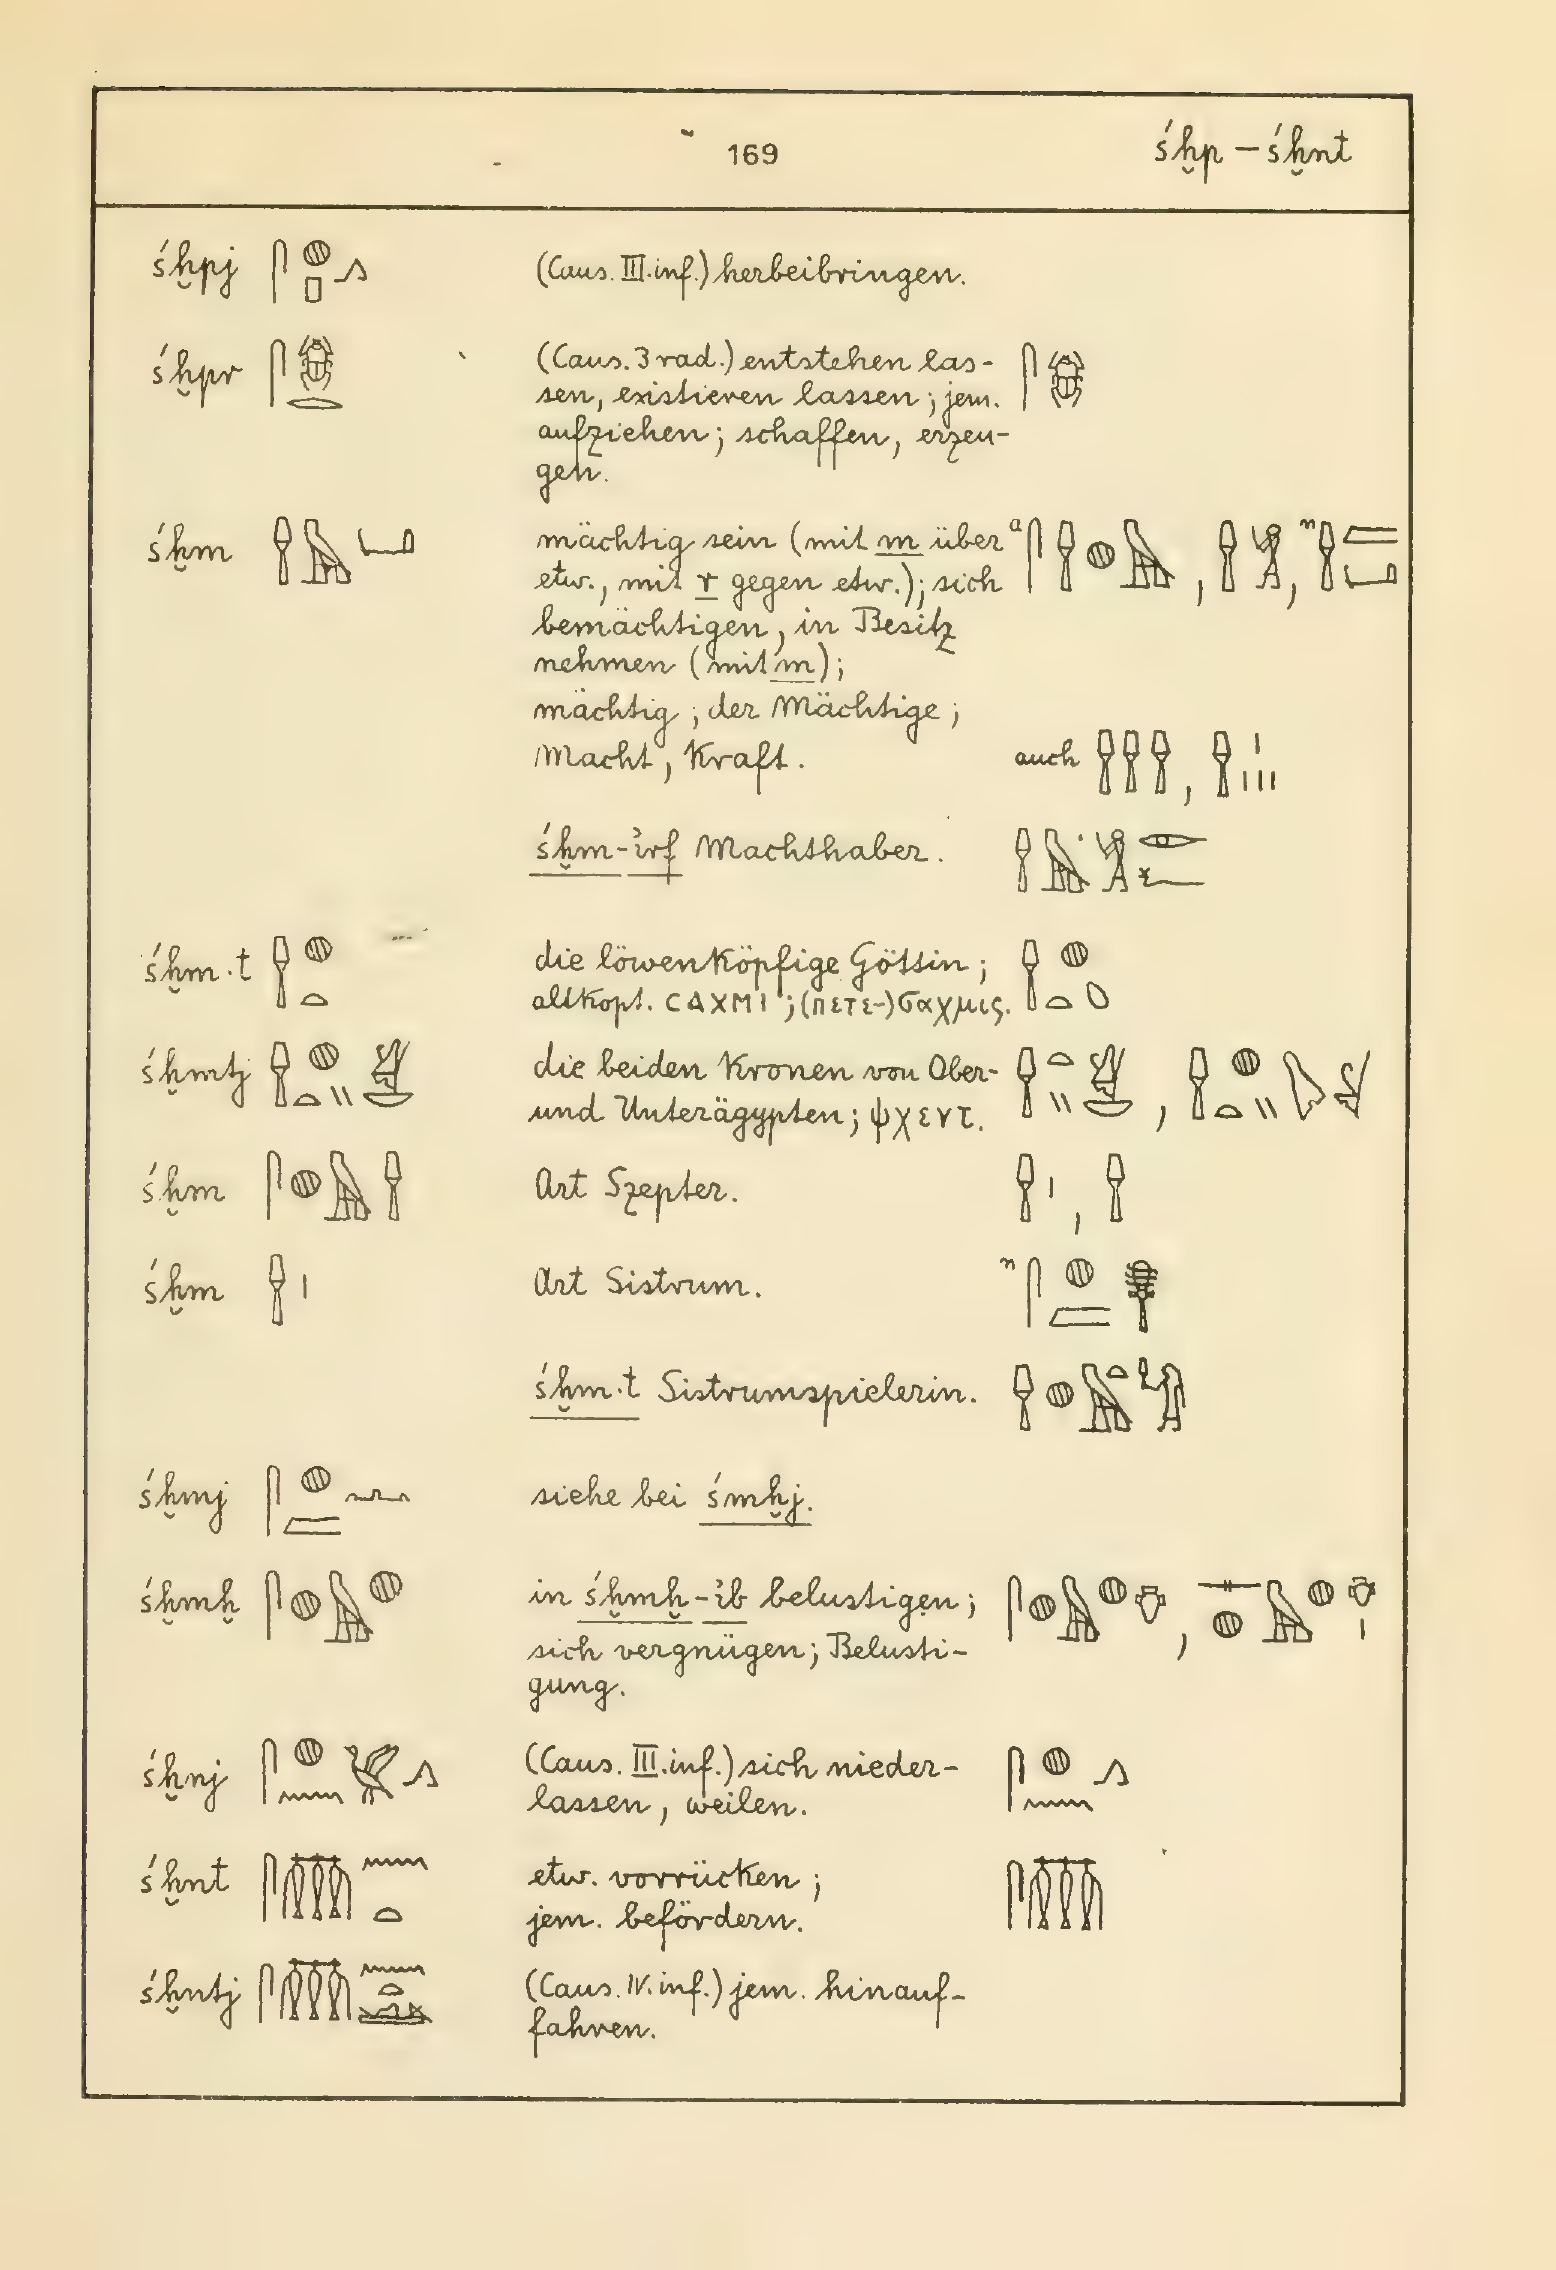 169
śḫp – śḫnt
śḫpj 𓋴𓐍𓊪𓂻 (Caus. III. inf.) herbeibringen.
śḫpr 𓋴𓆣𓂋 (Caus. 3 rad.) entstehen las- 𓋴𓆣
sen, existieren lassen; jem.
aufziehen; schaffen, erzeu-
gen.
śḫm 𓌂𓅓𓂡 mächtig sein (mit m über a
etw., mit r gegen etw.); sich
bemächtigen, in Besitz
nehmen (mit m);
mächtig; der Mächtige;
Macht, Kraft. auch 𓌂𓌂𓌂, 𓌂𓏤𓏥
śḫm-ἰrf Machthaber.
śḫm.t 𓌂𓐍𓏏 die löwenköpfige Göttin; 𓌂𓐍𓏏𓆇
altkopt. ⲤⲀⲬⲘⲒ; (πετε-)σαχμις.
śḫmtj die beiden Kronen von Ober-
und Unterägypten; ψχεντ.
śḫm 𓋴𓐍𓅓𓌂 Art Szepter. 𓌂𓏤, 𓌂
śḫm 𓌂𓏤 Art Sistrum. n 𓋴𓐍𓈘𓏣
śḫm.t Sistrumspielerin.
śḫmj siehe bei śmḫj.
śḫmḫ 𓋴𓐍𓅓𓐍 in śḫmḫ-ἰb belustigen; 𓋴𓐍𓅓𓐍𓄣, 𓊃𓐍𓅓𓐍𓄣𓏤
sich vergnügen; Belusti-
gung.
śḫnj 𓋴𓐍𓈖𓂻 (Caus. III. inf.) sich nieder- 𓋴𓐍𓈖𓂻
lassen, weilen.
śḫnt 𓋴𓏃𓈖𓏏 etw. vorrücken; 𓋴𓏃
jem. befördern.
śḫntj 𓋴𓏃𓈖𓏏𓊛 (Caus. IV. inf.) jem. hinauf-
fahren.